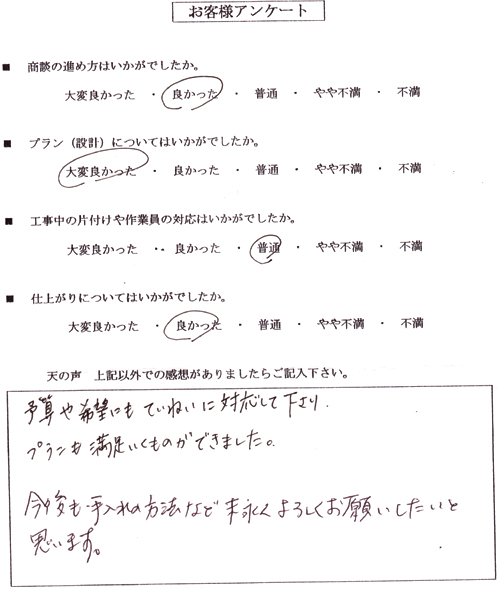 お客様アンケート
■ 商談の進め方はいかがでしたか。
大変良かった ・ 良かった ・ 普通 ・ やや不満 ・ 不満
■ プラン（設計）についてはいかがでしたか。
大変良かった ・ 良かった ・ 普通 ・ やや不満 ・ 不満
■ 工事中の片付けや作業員の対応はいかがでしたか。
大変良かった ・・ 良かった ・ 普通 ・ やや不満 ・ 不満
■ 仕上がりについてはいかがでしたか。
大変良かった ・ 良かった ・ 普通 ・ やや不満 ・ 不満
天の声 上記以外での感想がありましたらご記入下さい。
予算や希望にもていねいに対応して下さり.
プランも満足いくものができました。
今後も手入れの方法など末永くよろしくお願いしたいと
思います。